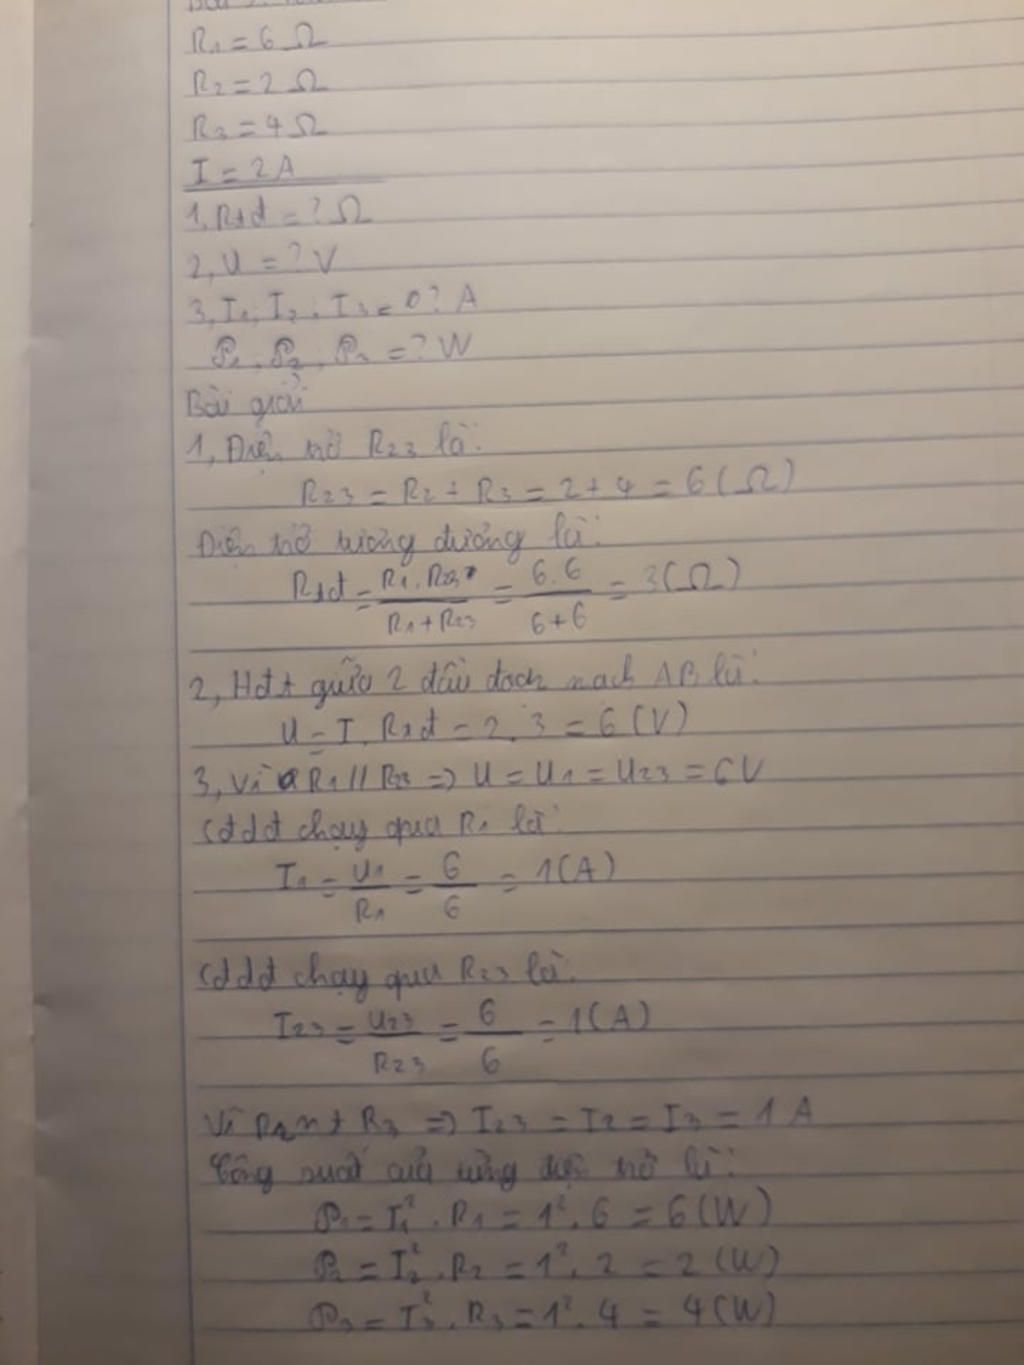 R1 = 6 Ω
R2 = 2 Ω
R3 = 4 Ω
I = 2 A
1, Rtd = ? Ω
2, U = ? V
3, I1, I2, I3 = 0? A
P1, P2, P3 = ? W
Bài giải
1, Điện trở R23 là:
R23 = R2 + R3 = 2 + 4 = 6 (Ω)
Điện trở tương đương là:
Rtđ = R1 . R23 / R1 + R23 = 6.6 / 6+6 = 3 (Ω)
2, Hđt giữa 2 đầu đoạn mạch AB là:
U = I . Rtđ = 2 . 3 = 6 (V)
3, Vì R1 // R23 => U = U1 = U23 = 6V
Cđdđ chạy qua R1 là:
I1 = U1 / R1 = 6 / 6 = 1 (A)
Cđdđ chạy qua R23 là:
I23 = U23 / R23 = 6 / 6 = 1 (A)
Vì R2 nt R3 => I23 = I2 = I3 = 1 A
Công suất của từng điện trở là:
P1 = I1² . R1 = 1² . 6 = 6 (W)
P2 = I2² . R2 = 1² . 2 = 2 (W)
P3 = I3² . R3 = 1² . 4 = 4 (W)